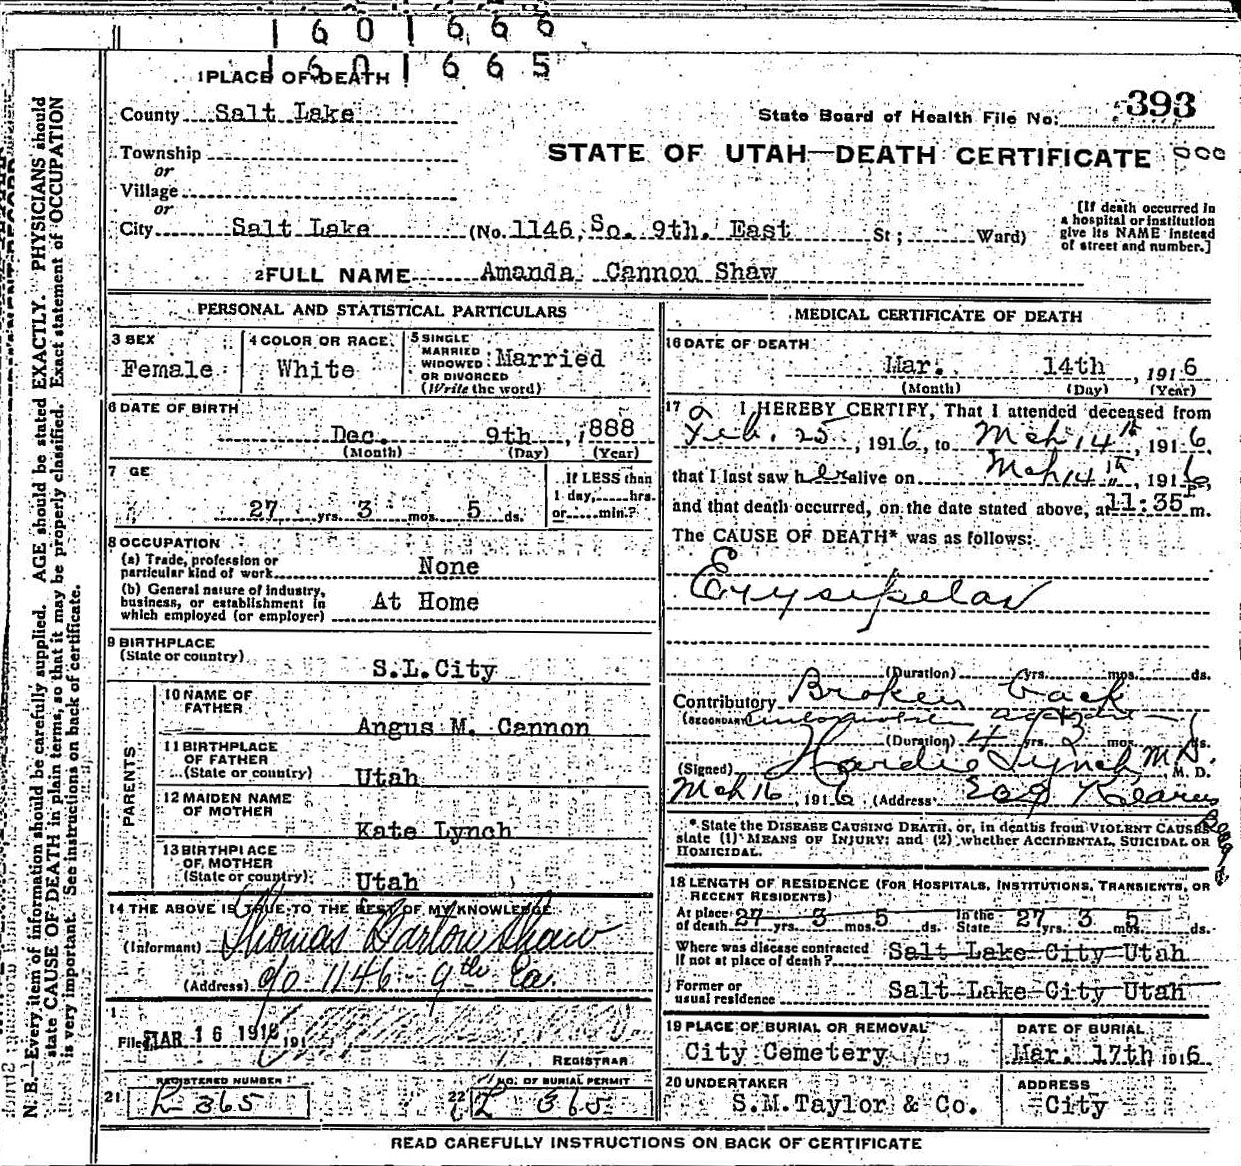 1 6 0 1 6 6 6
1 6 0 1 6 6 5
1 PLACE OF DEATH
County Salt Lake
State Board of Health File No. 393
Township
or
STATE OF UTAH—DEATH CERTIFICATE
Village
or
City Salt Lake (No. 1146, So. 9th. East St; Ward)
[If death occurred in
a hospital or institution
give its NAME instead
of street and number.]
2 FULL NAME Amanda Cannon Shaw
PERSONAL AND STATISTICAL PARTICULARS
3 SEX
Female
4 COLOR OR RACE
White
5 SINGLE
MARRIED
WIDOWED
OR DIVORCED
(Write the word)
Married
6 DATE OF BIRTH
Dec. 9th, 1888
(Month) (Day) (Year)
7 GE
27 yrs. 3 mos. 5 ds.
If LESS than
1 day, hrs.
or min.?
8 OCCUPATION
(a) Trade, profession or
particular kind of work None
(b) General nature of industry,
business, or establishment in
which employed (or employer) At Home
9 BIRTHPLACE
(State or country) S.L.City
PARENTS
10 NAME OF
FATHER Angus M. Cannon
11 BIRTHPLACE
OF FATHER
(State or country) Utah
12 MAIDEN NAME
OF MOTHER Kate Lynch
13 BIRTHPLACE
OF MOTHER
(State or country) Utah
14 THE ABOVE IS TRUE TO THE BEST OF MY KNOWLEDGE
(Informant) Thomas Barlow Shaw
(Address) c/o 1146 - 9th Ea.
Filed MAR 16 1916 191
REGISTRAR
REGISTERED NUMBER
21 L 365
NO. OF BURIAL PERMIT
22 L 365
MEDICAL CERTIFICATE OF DEATH
16 DATE OF DEATH
Mar. 14th, 1916
(Month) (Day) (Year)
17 I HEREBY CERTIFY, That I attended deceased from
Feb. 25, 1916, to Mch 14th, 1916,
that I last saw her alive on Mch 14th, 1916,
and that death occurred, on the date stated above, at 11:35 P m.
The CAUSE OF DEATH* was as follows:
Erysipelas
(Duration) yrs. mos. ds.
Contributory Broken back
(SECONDARY)
(Duration) 4 yrs. 2 mos. ds.
(Signed) Hardie Lynch M.D. M. D.
Mch 16, 1916 (Address Kearns
Bldg
* State the DISEASE CAUSING DEATH, or, in deaths from VIOLENT CAUSES
state (1) MEANS OF INJURY; and (2) whether ACCIDENTAL, SUICIDAL OR
HOMICIDAL.
18 LENGTH OF RESIDENCE (FOR HOSPITALS, INSTITUTIONS, TRANSIENTS, OR
RECENT RESIDENTS)
At place of death 27 yrs. 3 mos. 5 ds. In the State 27 yrs. 3 mos. 5 ds.
Where was disease contracted
If not at place of death? Salt Lake City Utah
Former or
usual residence Salt Lake City Utah
19 PLACE OF BURIAL OR REMOVAL
City Cemetery
DATE OF BURIAL
Mar. 17th 1916
20 UNDERTAKER
S.M.Taylor & Co.
ADDRESS
City
READ CAREFULLY INSTRUCTIONS ON BACK OF CERTIFICATE
N. B.—Every item of information should be carefully supplied. AGE should be stated EXACTLY. PHYSICIANS should
state CAUSE OF DEATH in plain terms, so that it may be properly classified. Exact statement of OCCUPATION
is very important. See instructions on back of certificate.